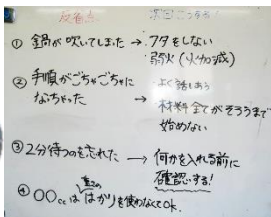 反省点
次回こうする!
① 鍋が吹いてしまった → フタをしない
弱火(火加減)
② 手順がごちゃごちゃに
なっちゃった → よく話しあう
材料全てがそろうまで
始めない
③ 2分待つのを忘れた → 何かを入れる前に
確認する!
④ ○○ccは はかりを使わなくてOK.